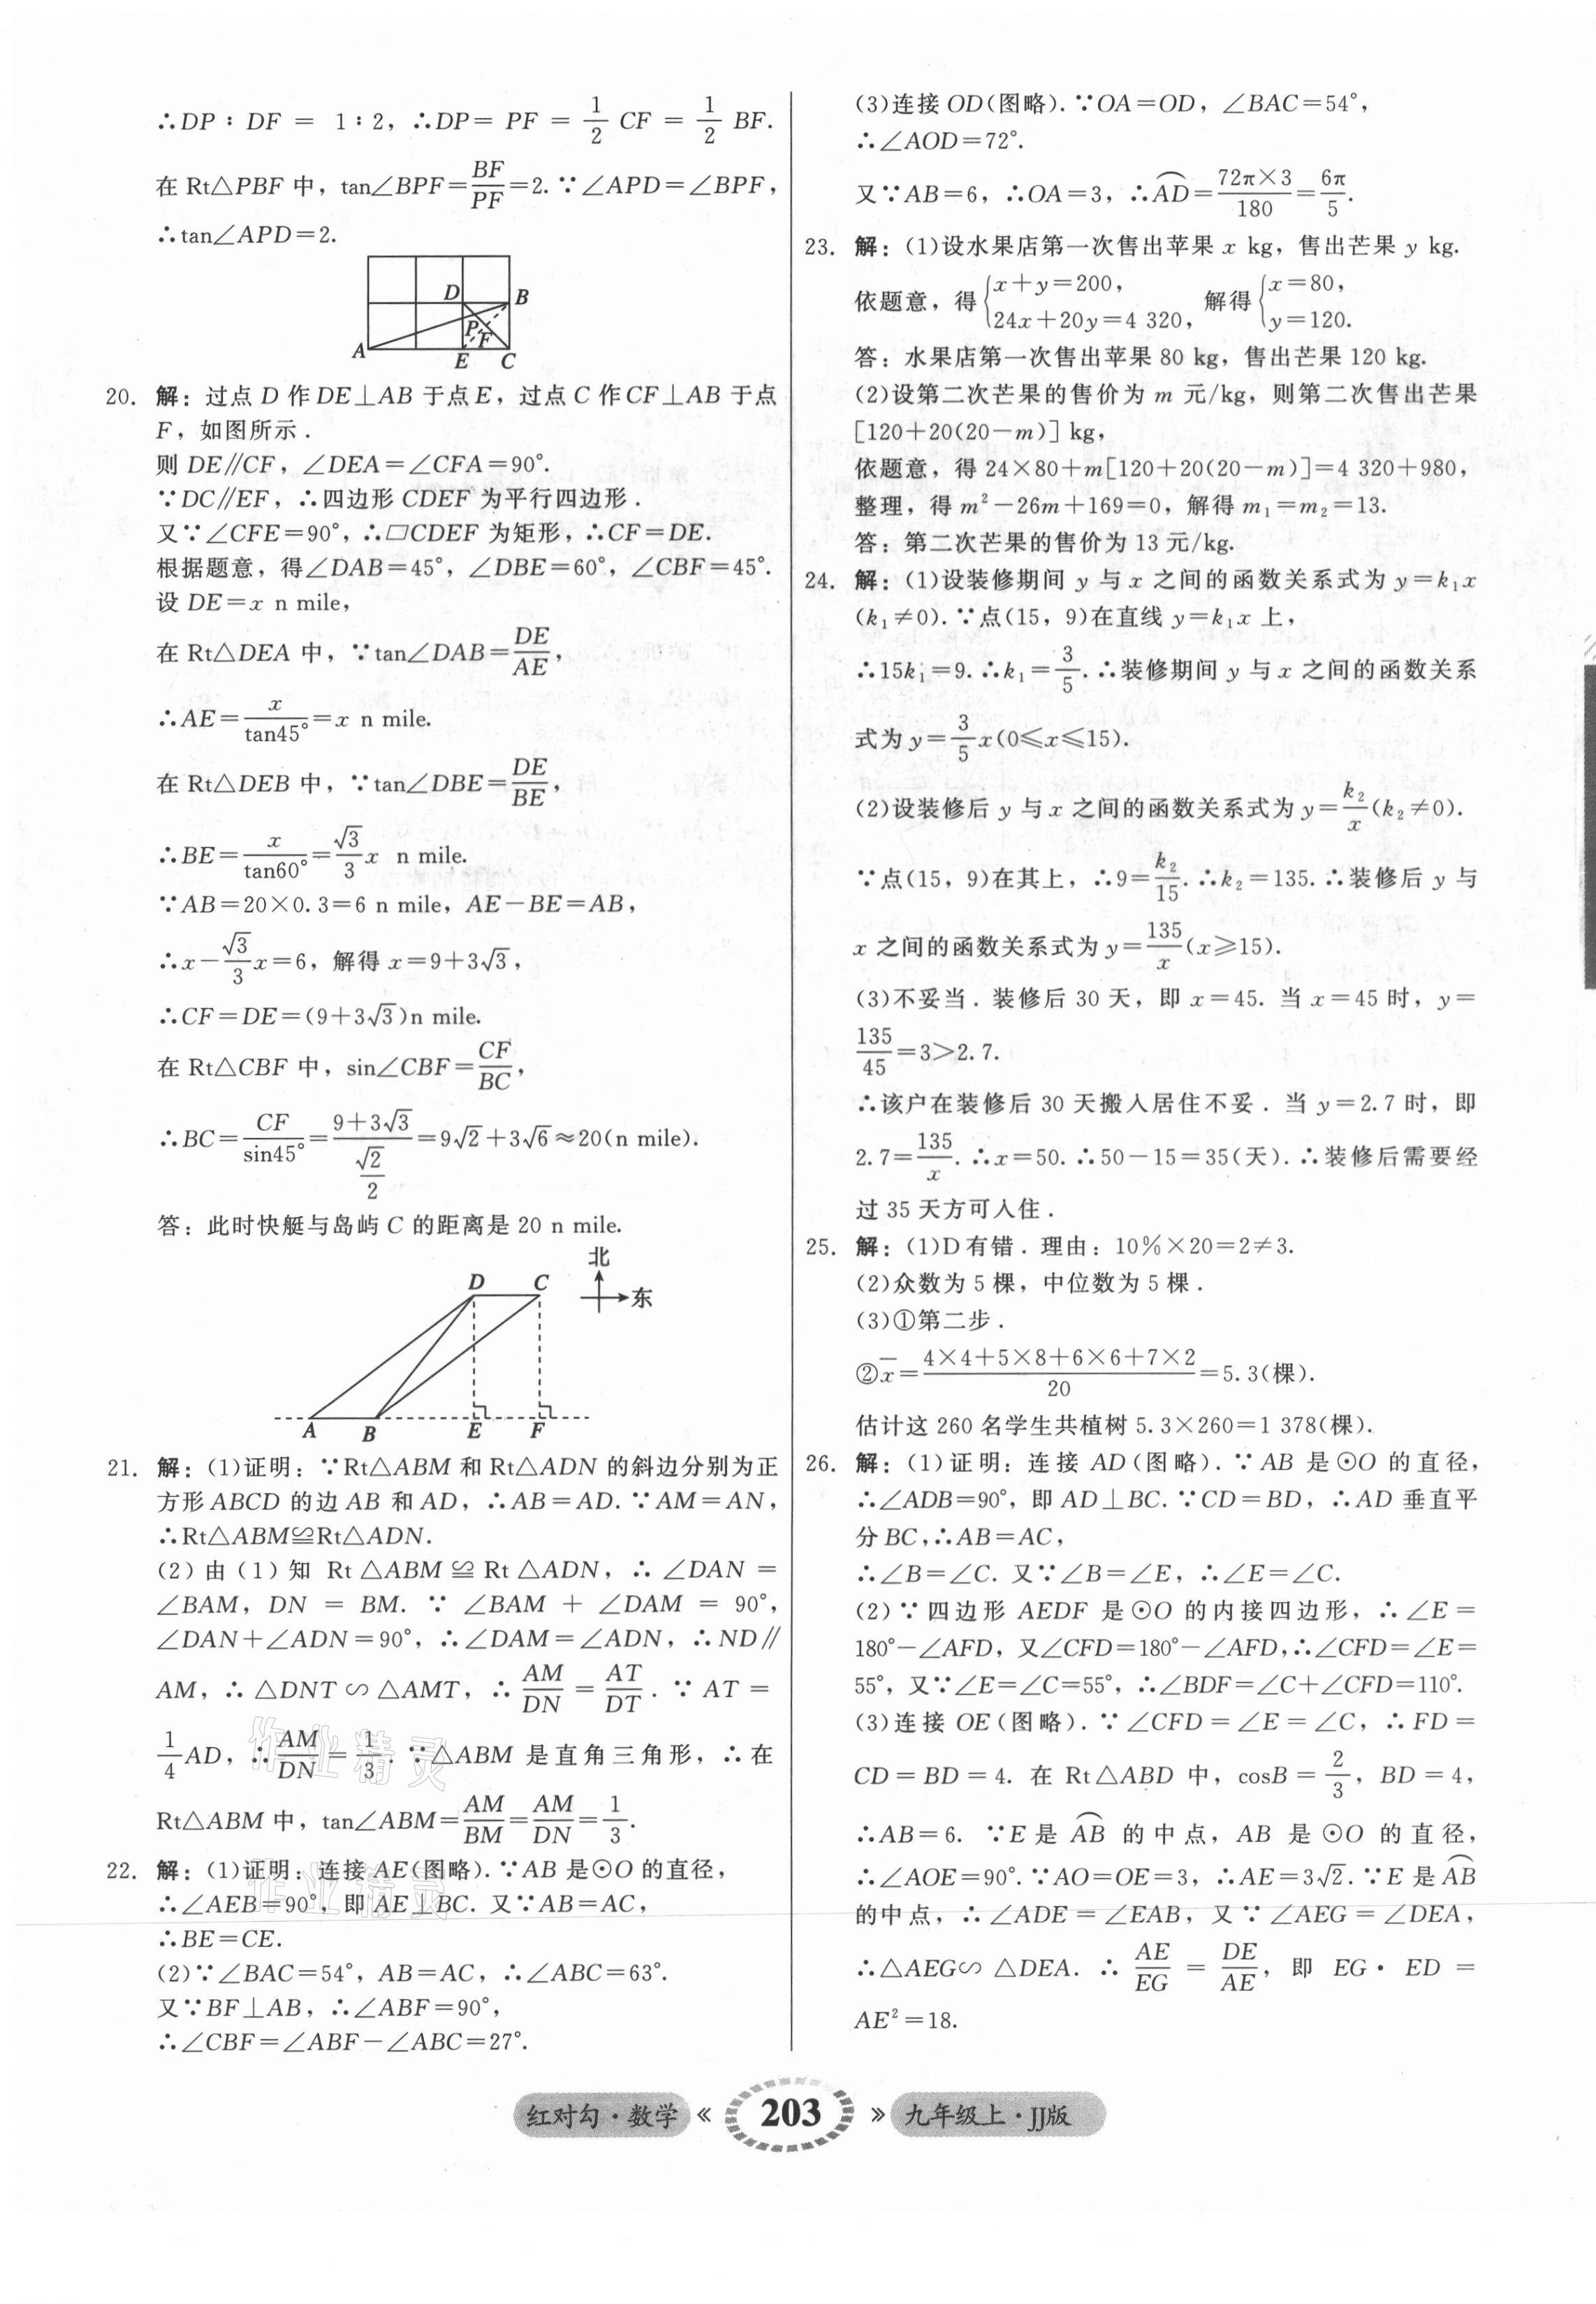 ∴DP∶DF = 1∶2，∴DP= PF = 1/2 CF = 1/2 BF.
在 Rt△PBF 中，tan∠BPF=BF/PF=2. ∵∠APD=∠BPF，
∴tan∠APD=2.
D B
P F
A E C
20. 解：过点 D 作 DE⊥AB 于点 E，过点 C 作 CF⊥AB 于点
F，如图所示.
则 DE∥CF，∠DEA=∠CFA=90°.
∵DC∥EF，∴四边形 CDEF 为平行四边形.
又∵∠CFE=90°，∴□CDEF 为矩形，∴CF=DE.
根据题意，得∠DAB=45°，∠DBE=60°，∠CBF=45°.
设 DE=x n mile，
在 Rt△DEA 中，∵tan∠DAB=DE/AE，
∴AE=x/tan45°=x n mile.
在 Rt△DEB 中，∵tan∠DBE=DE/BE，
∴BE=x/tan60°=√3/3 x n mile.
∵AB=20×0.3=6 n mile，AE−BE=AB，
∴x−√3/3 x=6，解得 x=9+3√3，
∴CF=DE=(9+3√3)n mile.
在 Rt△CBF 中，sin∠CBF=CF/BC，
∴BC=CF/sin45°=(9+3√3)/(√2/2)=9√2+3√6≈20(n mile).
答：此时快艇与岛屿 C 的距离是 20 n mile.
北
D C 东
A B E F
21. 解：(1)证明：∵Rt△ABM 和 Rt△ADN 的斜边分别为正
方形 ABCD 的边 AB 和 AD，∴AB=AD. ∵AM=AN，
∴Rt△ABM≌Rt△ADN.
(2)由(1)知 Rt△ABM≌Rt△ADN，∴∠DAN=
∠BAM，DN = BM. ∵∠BAM + ∠DAM = 90°，
∠DAN+∠ADN=90°，∴∠DAM=∠ADN，∴ND∥
AM，∴△DNT∽△AMT，∴AM/DN=AT/DT. ∵AT=
1/4 AD，∴AM/DN=1/3. ∵△ABM 是直角三角形，∴在
Rt△ABM 中，tan∠ABM=AM/BM=AM/DN=1/3.
22. 解：(1)证明：连接 AE(图略). ∵AB 是⊙O 的直径，
∴∠AEB=90°，即 AE⊥BC. 又∵AB=AC，
∴BE=CE.
(2)∵∠BAC=54°，AB=AC，∴∠ABC=63°.
又∵BF⊥AB，∴∠ABF=90°，
∴∠CBF=∠ABF−∠ABC=27°.
(3)连接 OD(图略). ∵OA=OD，∠BAC=54°，
∴∠AOD=72°.
又∵AB=6，∴OA=3，∴⌒AD=72π×3/180=6π/5.
23. 解：(1)设水果店第一次售出苹果 x kg，售出芒果 y kg.
依题意，得{x+y=200，24x+20y=4 320，解得{x=80，y=120.
答：水果店第一次售出苹果 80 kg，售出芒果 120 kg.
(2)设第二次芒果的售价为 m 元/kg，则第二次售出芒果
[120+20(20−m)] kg，
依题意，得 24×80+m[120+20(20−m)]=4 320+980，
整理，得 m²−26m+169=0，解得 m₁=m₂=13.
答：第二次芒果的售价为 13 元/kg.
24. 解：(1)设装修期间 y 与 x 之间的函数关系式为 y=k₁x
(k₁≠0). ∵点(15，9)在直线 y=k₁x 上，
∴15k₁=9. ∴k₁=3/5. ∴装修期间 y 与 x 之间的函数关系
式为 y=3/5 x(0≤x≤15).
(2)设装修后 y 与 x 之间的函数关系式为 y=k₂/x(k₂≠0).
∵点(15，9)在其上，∴9=k₂/15. ∴k₂=135. ∴装修后 y 与
x 之间的函数关系式为 y=135/x(x≥15).
(3)不妥当. 装修后 30 天，即 x=45. 当 x=45 时，y=
135/45=3>2.7.
∴该户在装修后 30 天搬入居住不妥. 当 y=2.7 时，即
2.7=135/x. ∴x=50. ∴50−15=35(天). ∴装修后需要经
过 35 天方可入住.
25. 解：(1)D 有错. 理由：10%×20=2≠3.
(2)众数为 5 棵，中位数为 5 棵.
(3)①第二步.
②x̄=(4×4+5×8+6×6+7×2)/20=5.3(棵).
估计这 260 名学生共植树 5.3×260=1 378(棵).
26. 解：(1)证明：连接 AD(图略). ∵AB 是⊙O 的直径，
∴∠ADB=90°，即 AD⊥BC. ∵CD=BD，∴AD 垂直平
分 BC，∴AB=AC，
∴∠B=∠C. 又∵∠B=∠E，∴∠E=∠C.
(2)∵四边形 AEDF 是⊙O 的内接四边形，∴∠E=
180°−∠AFD，又∠CFD=180°−∠AFD，∴∠CFD=∠E=
55°，又∵∠E=∠C=55°，∴∠BDF=∠C+∠CFD=110°.
(3)连接 OE(图略). ∵∠CFD=∠E=∠C，∴FD=
CD=BD=4. 在 Rt△ABD 中，cosB=2/3，BD=4，
∴AB=6. ∵E 是⌒AB 的中点，AB 是⊙O 的直径，
∴∠AOE=90°. ∵AO=OE=3，∴AE=3√2. ∵E 是⌒AB
的中点，∴∠ADE=∠EAB，又∵∠AEG=∠DEA，
∴△AEG∽△DEA. ∴AE/EG=DE/AE，即 EG·ED=
AE²=18.
作业精灵
作业精灵
红对勾·数学 《 203 》 九年级上·JJ版